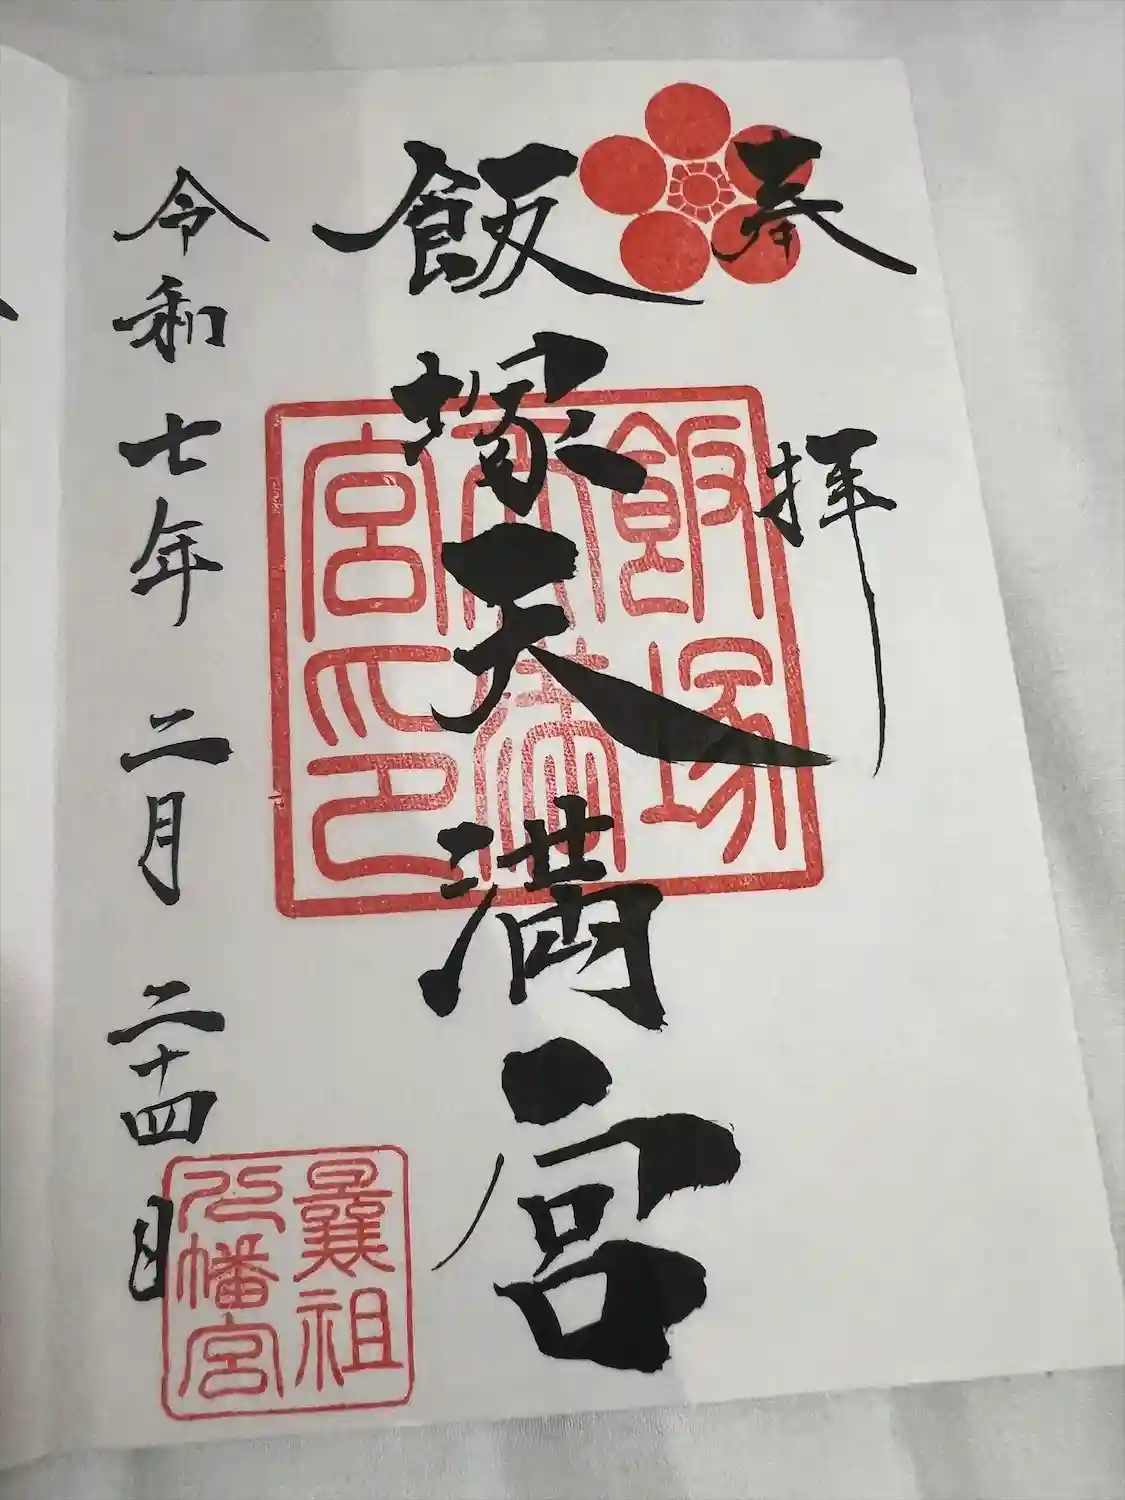 奉拝
飯塚天満宮
飯塚
天満
宮印
令和七年二月二十四日
曩祖
八幡宮